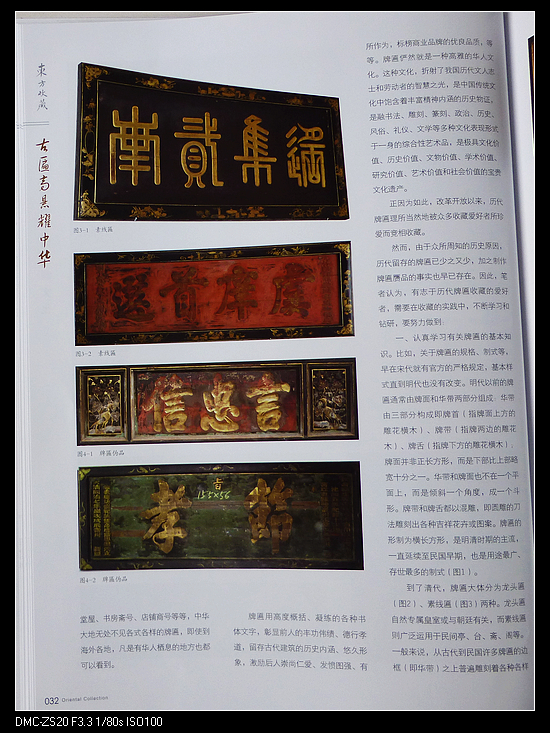 東方收藏
古匾高悬耀中华
图3-1 素线匾
虞庠首選
图3-2 素线匾
言忠信
图4-1 牌匾伪品
155x56
節孝
图4-2 牌匾伪品
堂屋、书房斋号、店铺商号等等，中华
大地无处不见各式各样的牌匾，即使到
海外各地，凡是有华人栖息的地方也都
可以看到。
牌匾用高度概括、凝炼的各种书
体文字，彰显前人的丰功伟绩、德行孝
道，留存古代建筑的历史内涵、悠久形
象，激励后人崇尚仁爱、发愤图强、有
所作为，标榜商业品牌的优良品质，等
等。牌匾俨然就是一种高雅的华人文
化。这种文化，折射了我国历代文人志
士和劳动者的智慧之光，是中国传统文
化中饱含着丰富精神内涵的历史物证，
是融书法、雕刻、篆刻、政治、历史、
风俗、礼仪、文学等多种文化表现形式
于一身的综合性艺术品，是极具文化价
值、历史价值、文物价值、学术价值、
研究价值、艺术价值和社会价值的宝贵
文化遗产。
正因为如此，改革开放以来，历代
牌匾理所当然地被众多收藏爱好者所珍
爱而竞相收藏。
然而，由于众所周知的历史原因，
历代留存的牌匾已少之又少，加之制作
牌匾赝品的事实也早已存在。因此，笔
者认为，有志于历代牌匾收藏的爱好
者，需要在收藏的实践中，不断学习和
钻研，要努力做到：
一、认真学习有关牌匾的基本知
识。比如，关于牌匾的规格、制式等，
早在宋代就有官方的严格规定，基本样
式直到明代也没有改变。明代以前的牌
匾通常由牌面和华带两部分组成。华带
由三部分构成即牌首（指牌面上方的
雕花横木）、牌带（指牌两边的雕花
木）、牌舌（指牌下方的雕花横木），
牌面并非正长方形，而是下部比上部略
宽十分之一。华带和牌面也不在一个平
面上，而是倾斜一个角度，成一个斗
形。牌带和牌舌都以混雕，即圆雕的刀
法雕刻出各种吉祥花卉或图案。牌匾的
形制为横长方形，是明清时期的主流，
一直延续至民国早期，也是用途最广、
存世最多的制式（图1）。
到了清代，牌匾大体分为龙头匾
（图2）、素线匾（图3）两种。龙头匾
自然专属皇室或与朝廷有关，而素线匾
则广泛运用于民间亭、台、斋、阁等。
一般来说，从古代到民国许多牌匾的边
框（即华带）之上普遍雕刻着各种各样
032 Oriental Collection
DMC-ZS20 F3.3 1/80s ISO100